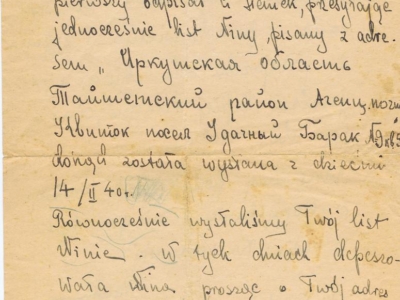 pierwszy odpisał u Heniek, przesyłając
jednocześnie list Niny, pisany z adre-
sem „ Иркутская область
Тайшетский район Агенц. почт
Квиток посел Удачный Барак №
dokąd została wysłana z dziećmi
14/II 40 r.
Równocześnie wysłaliśmy Twój list
Ninie. W tych dniach depeszo-
wała Nina prosząc o Twój adres